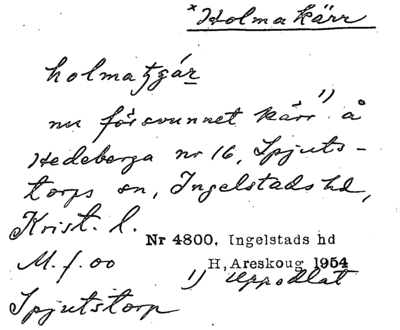 *Holmakärr
holmatgár
nu försvunnet kärr 1) å
Hedeberga nr 16, Spjuts-
torps sn, Ingelstads hd,
Krist. l.
Nr 4800. Ingelstads hd
M. f. 00
H, Areskoug 1954
1) Uppodlat
Spjutstorp